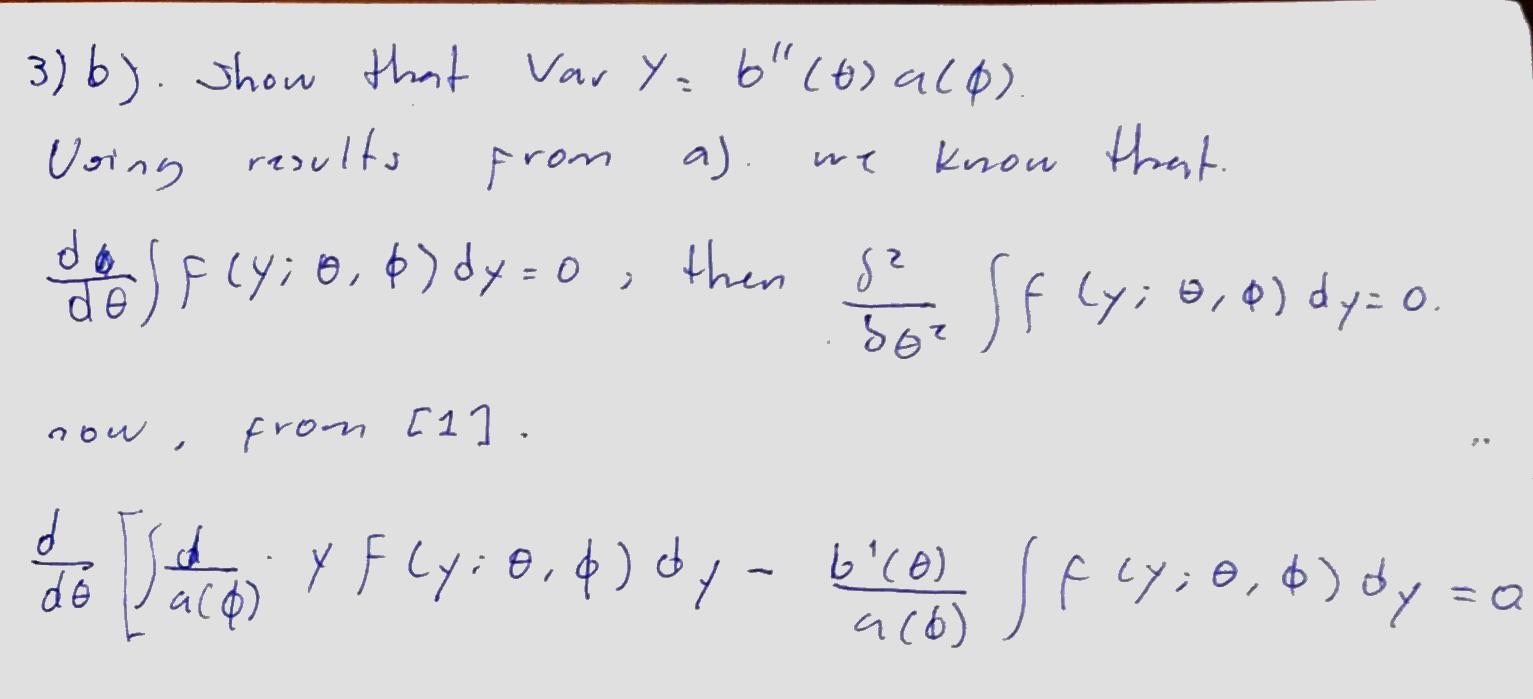 3) b). Show that Var Y = b''(θ) a(φ).
Using results from a). we know that.
d/dθ ∫ f(y; θ, φ) dy = 0, then δ²/δθ² ∫ f(y; θ, φ) dy = 0.
now, from [1].
d/dθ [∫ d/a(φ) · y f(y; θ, φ) dy - b'(θ)/a(φ) ∫ f(y; θ, φ) dy = 0